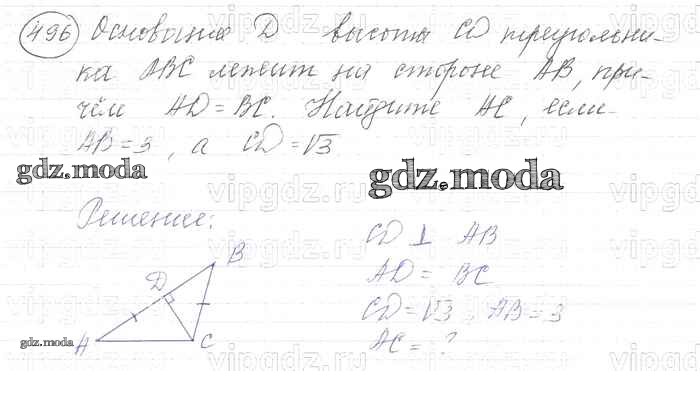 496 Основание D высоты CD треугольни-
ка ABC лежит на стороне AB, при-
чём AD = BC. Найдите AC, если
AB = 3, а CD = √3
gdz.moda
gdz.moda
Решение:
CD ⊥ AB
AD = BC
CD = √3, AB = 3
AC = ?
B
D
A
C
gdz.moda